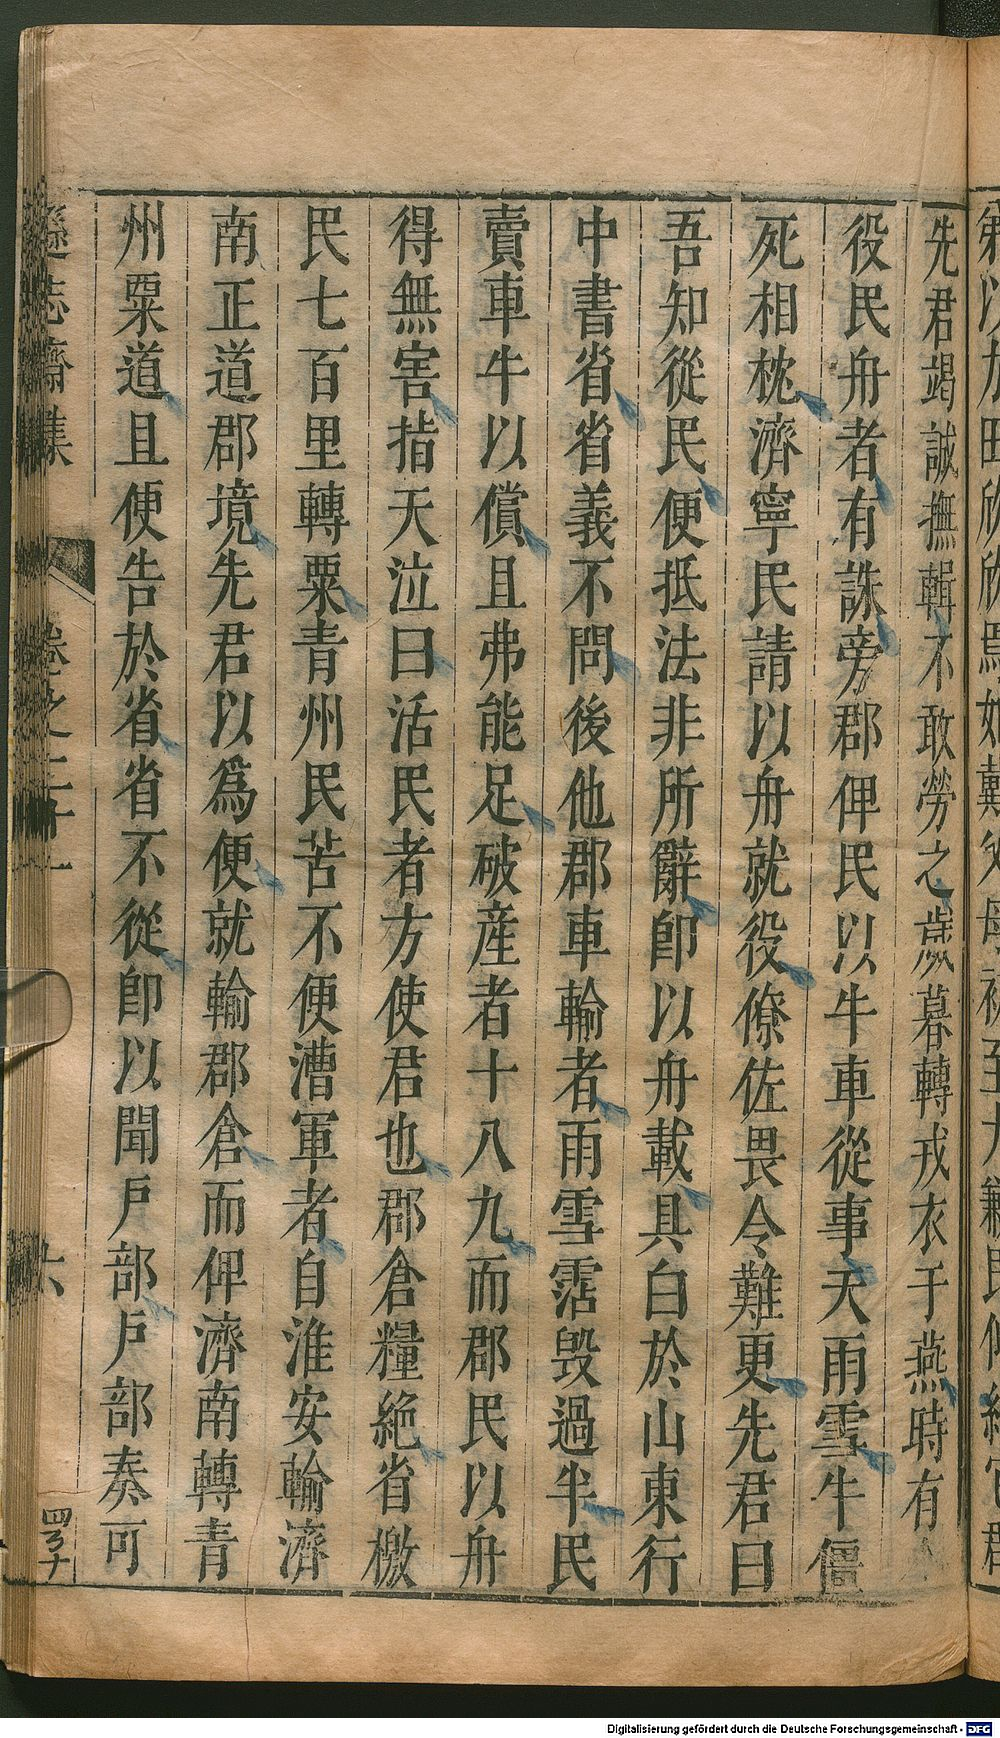 先君竭誠撫輯不敢勞之歲暮轉戎衣于燕時有
役民舟者有誅旁郡俾民以牛車從事天雨雪牛僵
死相枕濟寧民請以舟就役僚佐畏令難更先君曰
吾知從民便抵法非所辭卽以舟載具白於山東行
中書省省義不問後他郡車輸者雨雪霑毀過半民
賣車牛以償且弗能足破産者十八九而郡民以舟
得無害指天泣曰活民者方使君也郡倉糧絶省檄
民七百里轉粟青州民苦不便漕軍者自淮安輸濟
南正道郡境先君以爲便就輸郡倉而俾濟南轉青
州粟道且便告於省省不從卽以聞戶部戶部奏可
遜志齋集
卷之二十一
六
Digitalisierung gefördert durch die Deutsche Forschungsgemeinschaft - DFG